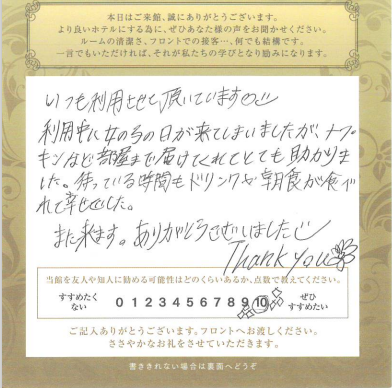 本日はご来館、誠にありがとうございます。
より良いホテルにする為に、ぜひあなた様の声をお聞かせください。
ルームの清潔さ、フロントでの接客…、何でも結構です。
一言でもいただければ、それが私たちの学びとなり励みになります。
いつも利用させて頂いています
利用中に女の子の日が来てしまいましたが、ナプ
キンなど部屋まで届けてくれてとても助かりま
した。待っている時間もドリンクや朝食が食べ
れて幸せでした。
また来ます。ありがとうございました
Thank you
当館を友人や知人に勧める可能性はどのくらいあるか、点数で教えてください。
すすめたく
ない
0 1 2 3 4 5 6 7 8 9 10
ぜひ
すすめたい
ご記入ありがとうございます。フロントへお渡しください。
ささやかなお礼をさせていただきます。
書ききれない場合は裏面へどうぞ